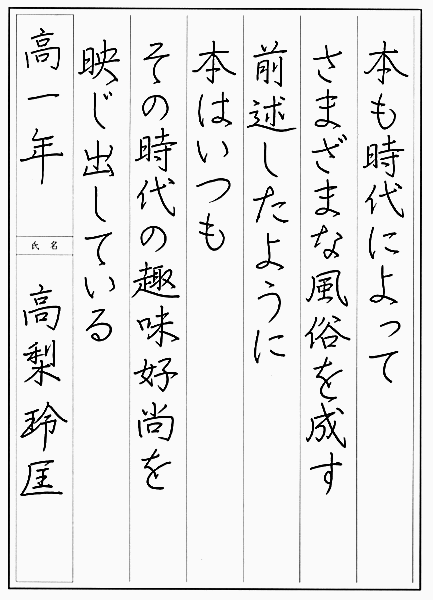 本も時代によって
さまざまな風俗を成す
前述したように
本はいつも
その時代の趣味好尚を
映じ出している
高一年
氏名
高梨玲匡